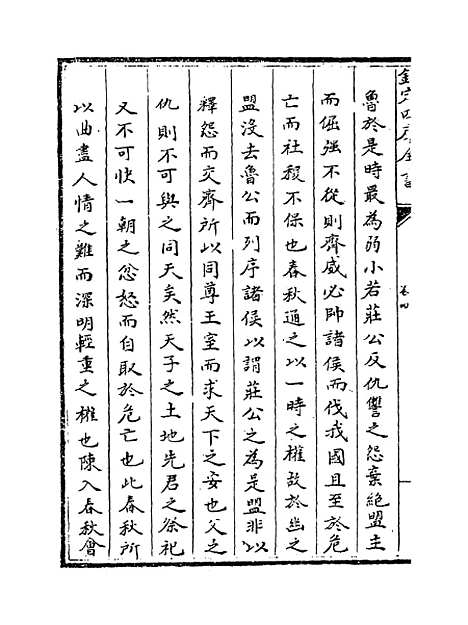 欽定四庫全書
卷四
魯於是時最為弱小若莊公反仇讐之怨棄絶盟主
而倔强不從則齊威必帥諸侯而伐我國且至於危
亡而社稷不保也春秋通之以一時之權故於幽之
盟沒去魯公而列序諸侯以謂莊公之為是盟非以
釋怨而交齊所以同尊王室而求天下之安也父之
仇則不可與之同天矣然天子之土地先君之祭祀
又不可快一朝之忿怒而自取於危亡也此春秋所
以曲盡人情之難而深明輕重之權也陳入春秋會